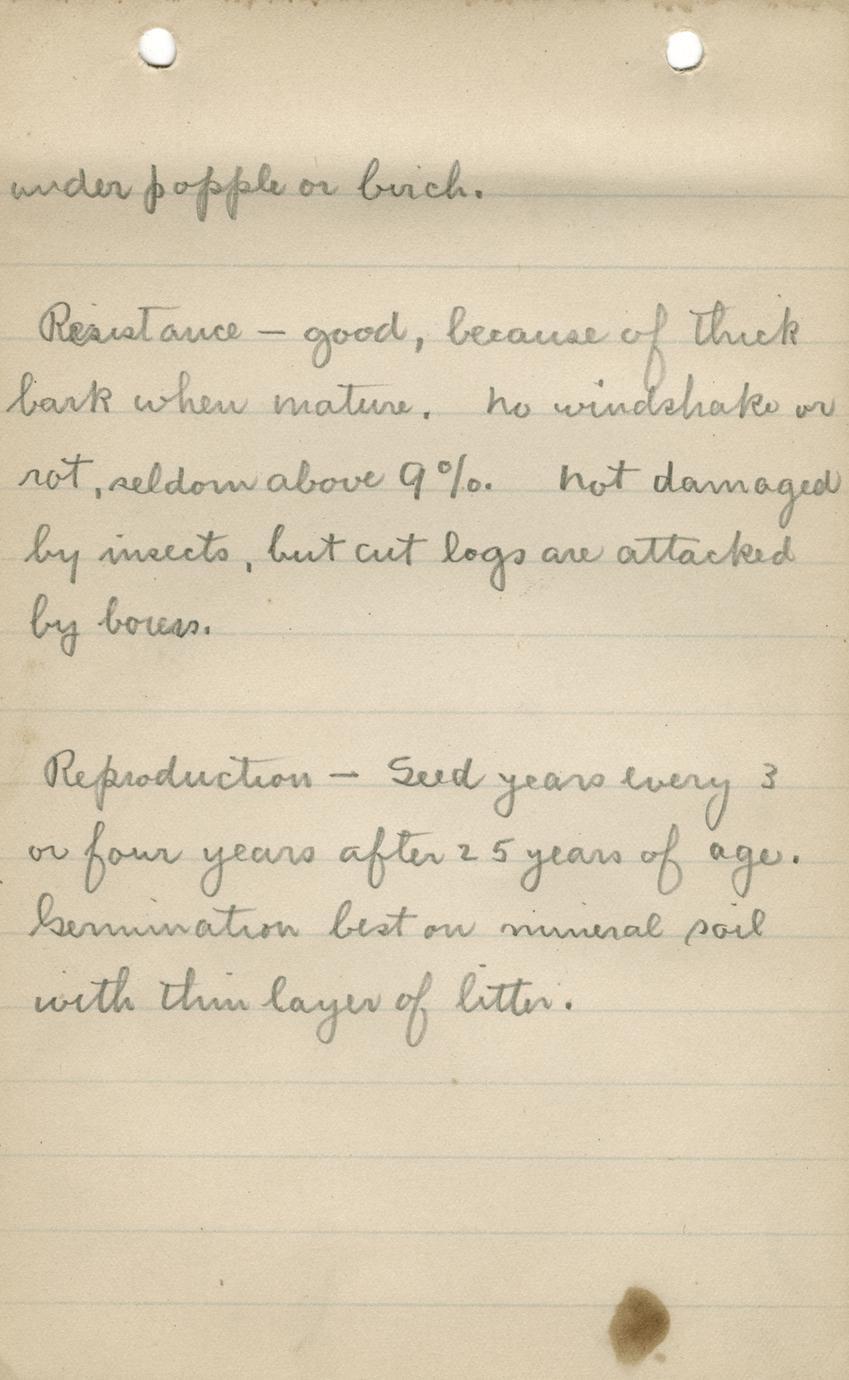 under popple or birch.
Resistance — good, because of thick
bark when mature. No windshake or
rot, seldom above 9%. Not damaged
by insects, but cut logs are attacked
by borers.
Reproduction — Seed years every 3
or four years after 25 years of age.
Germination best on mineral soil
with thin layer of litter.